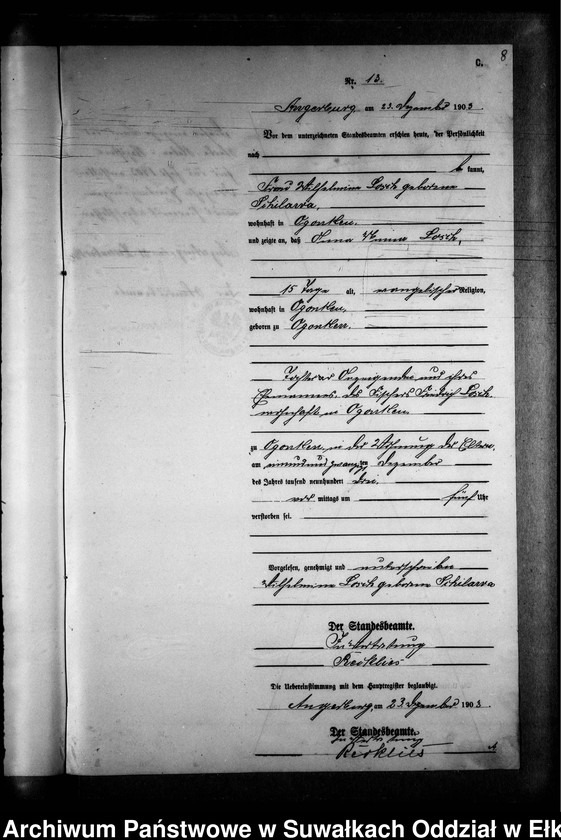 8
C.
Nr. 13.
Angerburg am 23. Dezember 1903.
Vor dem unterzeichneten Standesbeamten erschien heute, der Persönlichkeit
nach
be kannt,
Frau Wilhelmina Losch geborene
wohnhaft in Ogonken.
und zeigte an, daß Losch,
15 Tage alt, evangelischer Religion,
wohnhaft in Ogonken,
geboren zu Ogonken.
Tochter der Anzeigenden und ihres
Ehemannes, des Fischers Friedrich Losch
wohnhaft in Ogonken
zu Ogonken, in der Wohnung der Eltern,
am ten Dezember
des Jahres tausend neunhundert drei
vor mittags um fünf Uhr
verstorben sei.
Vorgelesen, genehmigt und unterschrieben
Wilhelmina Losch geborene
Der Standesbeamte.
In Vertretung
Die Uebereinstimmung mit dem Hauptregister beglaubigt.
Angerburg, am 23. Dezember 1903.
Der Standesbeamte.
In Vertretung
Archiwum Państwowe w Suwałkach Oddział w Ełk